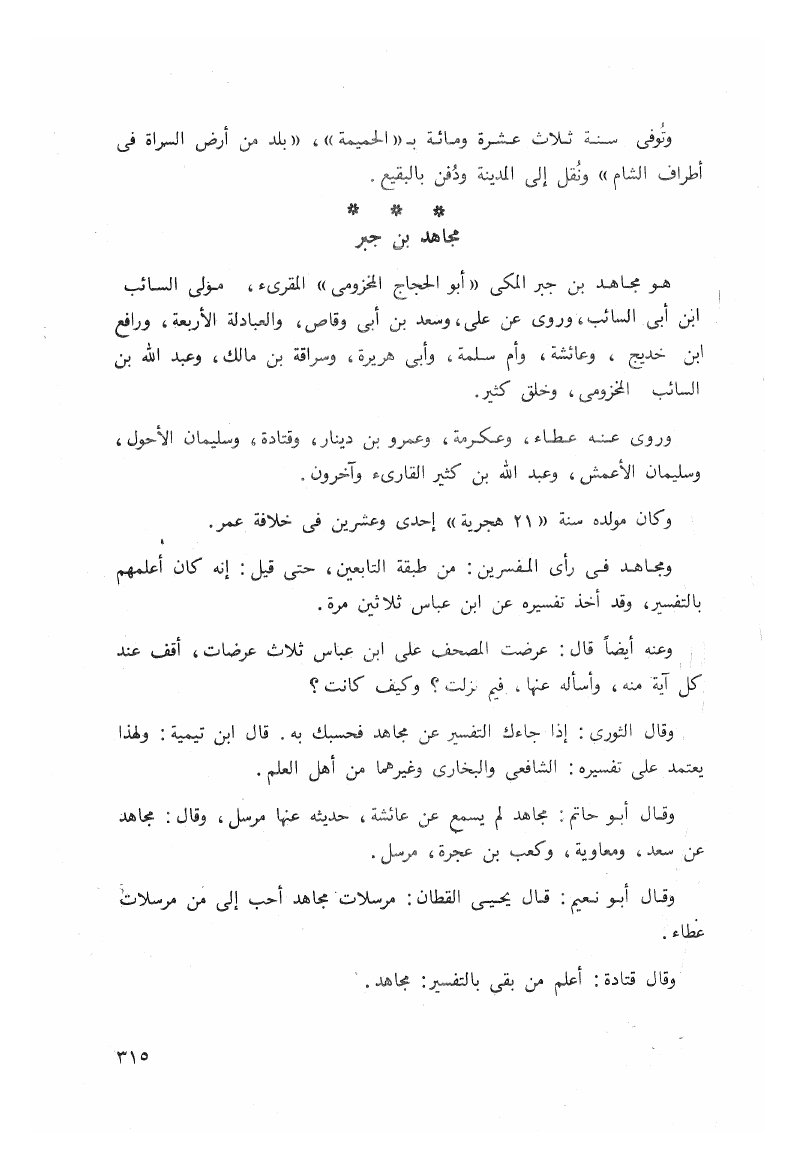 وتُوفى سنة ثلاث عشرة ومائة بـ«الحميمة»، «بلد من أرض السراة فى
أطراف الشام» ونُقل إلى المدينة ودُفن بالبقيع.
* * *
مجاهد بن جبر
هو مجاهد بن جبر المكى «أبو الحجاج المخزومى» المقرىء، مولى السائب
ابن أبى السائب، وروى عن على، وسعد بن أبى وقاص، والعبادلة الأربعة، ورافع
ابن خديج، وعائشة، وأم سلمة، وأبى هريرة، وسراقة بن مالك، وعبد الله بن
السائب المخزومى، وخلق كثير.
وروى عنه عطاء، وعكرمة، وعمرو بن دينار، وقتادة، وسليمان الأحول،
وسليمان الأعمش، وعبد الله بن كثير القارىء وآخرون.
وكان مولده سنة «٢١ هجرية» إحدى وعشرين فى خلافة عمر.
ومجاهد فى رأى المفسرين: من طبقة التابعين، حتى قيل: إنه كان أعلمهم
بالتفسير، وقد أخذ تفسيره عن ابن عباس ثلاثين مرة.
وعنه أيضاً قال: عرضت المصحف على ابن عباس ثلاث عرضات، أقف عند
كل آية منه، وأسأله عنها، فيم نزلت؟ وكيف كانت؟
وقال الثورى: إذا جاءك التفسير عن مجاهد فحسبك به. قال ابن تيمية: ولهذا
يعتمد على تفسيره: الشافعى والبخارى وغيرهما من أهل العلم.
وقال أبو حاتم: مجاهد لم يسمع عن عائشة، حديثه عنها مرسل، وقال: مجاهد
عن سعد، ومعاوية، وكعب بن عجرة، مرسل.
وقال أبو نعيم: قال يحيى القطان: مرسلات مجاهد أحب إلى من مرسلات
عطاء.
وقال قتادة: أعلم من بقى بالتفسير: مجاهد.
٣١٥